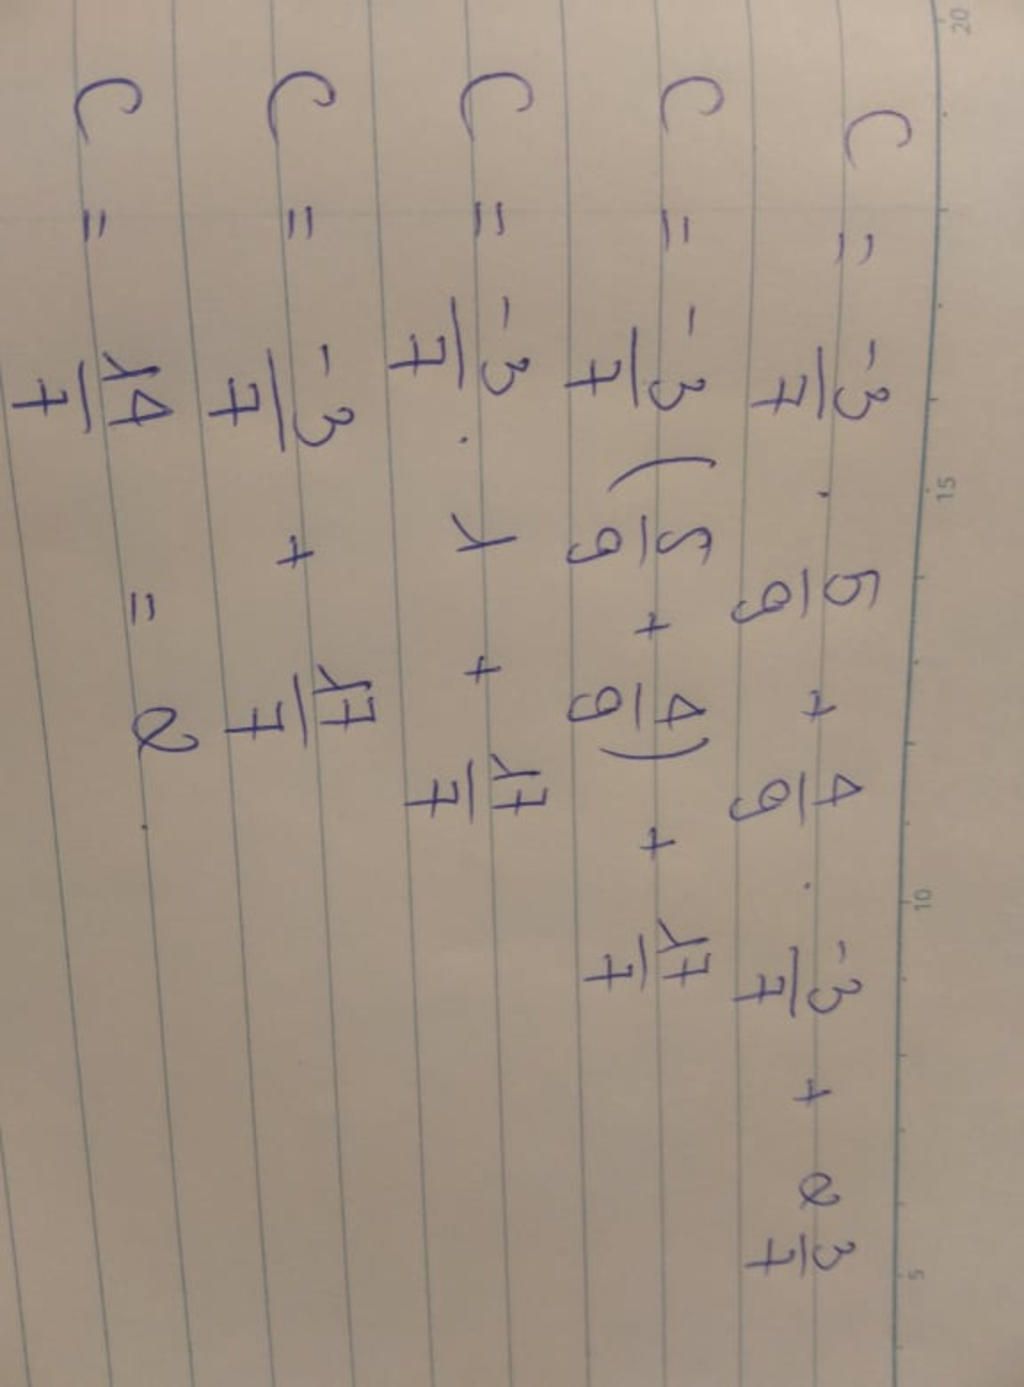 C = -3/7 . 5/9 + 4/9 . -3/7 + 2 3/7
C = -3/7 (5/9 + 4/9) + 17/7
C = -3/7 . 1 + 17/7
C = -3/7 + 17/7
C = 14/7 = 2.
20 15 10 5